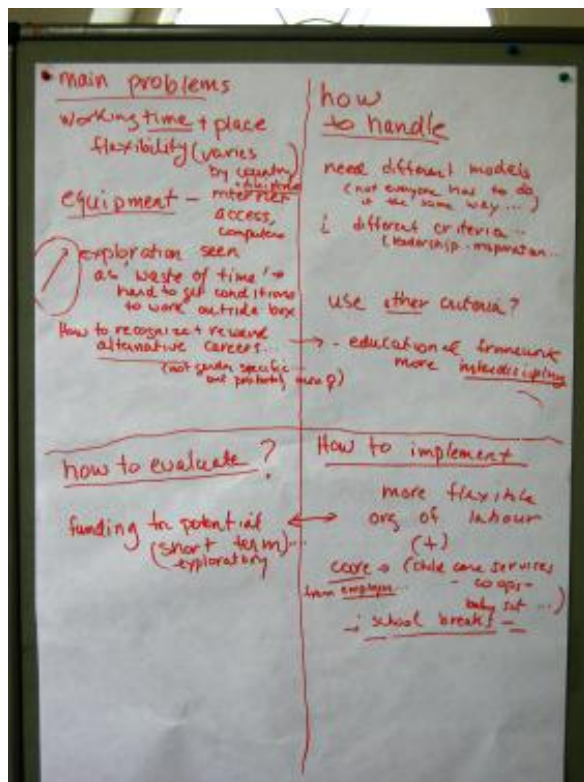 main problems
working time + place
flexibility (varies
by country
equipment - internet
access,
computers
exploration seen
as 'waste of time' →
hard to get conditions
to work outside box
How to recognize + reward
alternative careers...
(not gender specific
but probably more ♀)
how
to handle
need different models
(not everyone has to do
it the same way...)
different criteria...
(leadership - inspiration...
use other criteria?
→ - educational framework
more interdisciplinary
how to evaluate?
funding for potential
(short term)...
exploratory
How to implement
more flexible
org of labour
(+)
care → (child care services
from employer... - co ops -
baby sit ...)
school breaks -